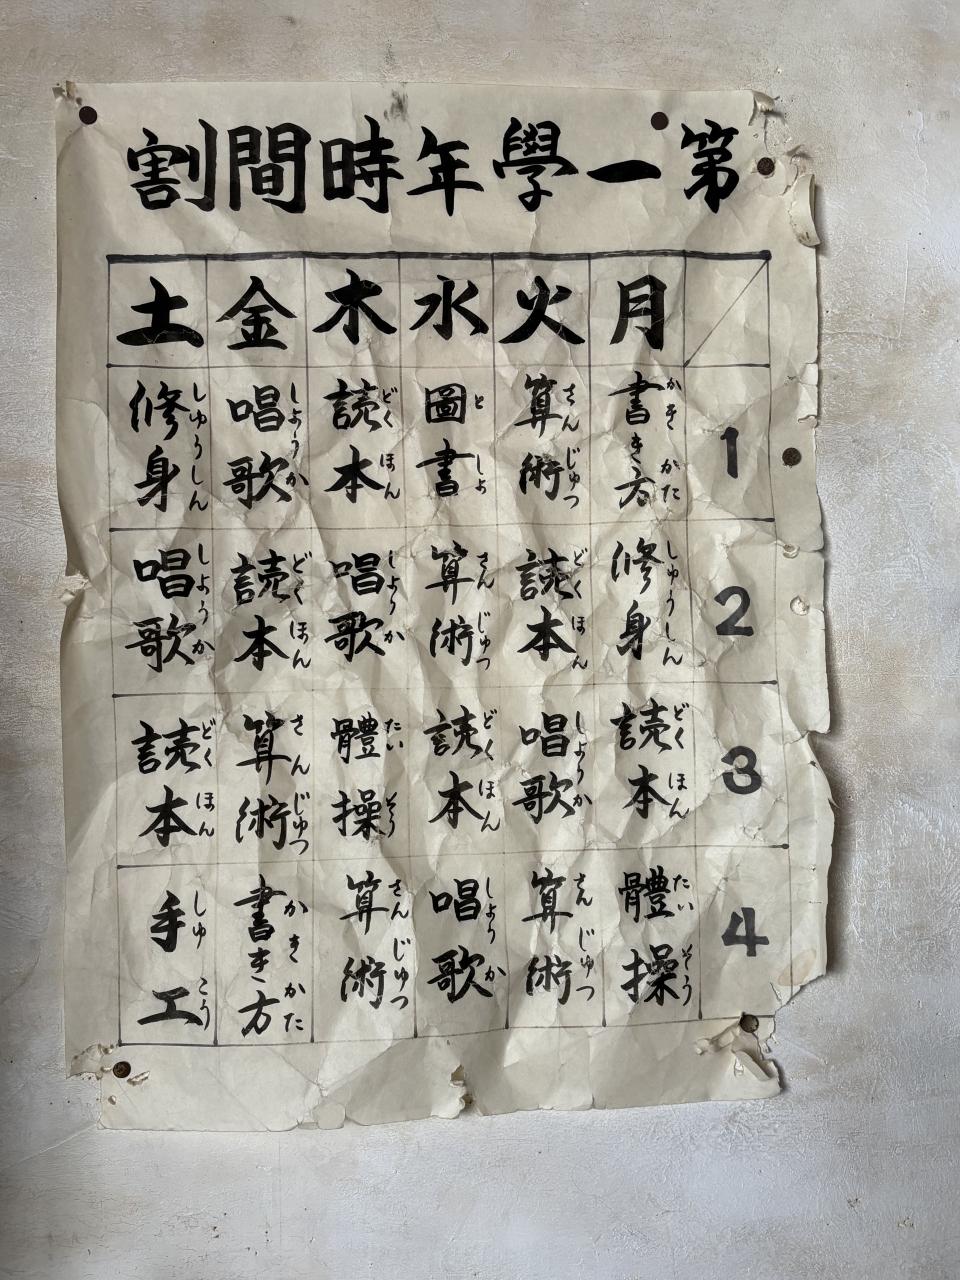 第一學年時間割
月 火 水 木 金 土
1
書き方
かきかた
算術
さんじゅつ
圖書
としょ
読本
どくほん
唱歌
しょうか
修身
しゅうしん
2
修身
しゅうしん
読本
どくほん
算術
さんじゅつ
唱歌
しょうか
読本
どくほん
唱歌
しょうか
3
読本
どくほん
唱歌
しょうか
読本
どくほん
體操
たいそう
算術
さんじゅつ
読本
どくほん
4
體操
たいそう
算術
さんじゅつ
唱歌
しょうか
算術
さんじゅつ
書き方
かきかた
手工
しゅこう